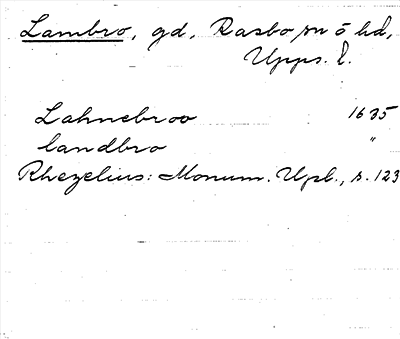 Lambro, gd, Rasbo sn o hd,
Upps. l.
Lahnebroo 1635
landbro "
Rhezelius: Monum. Upl., s. 123